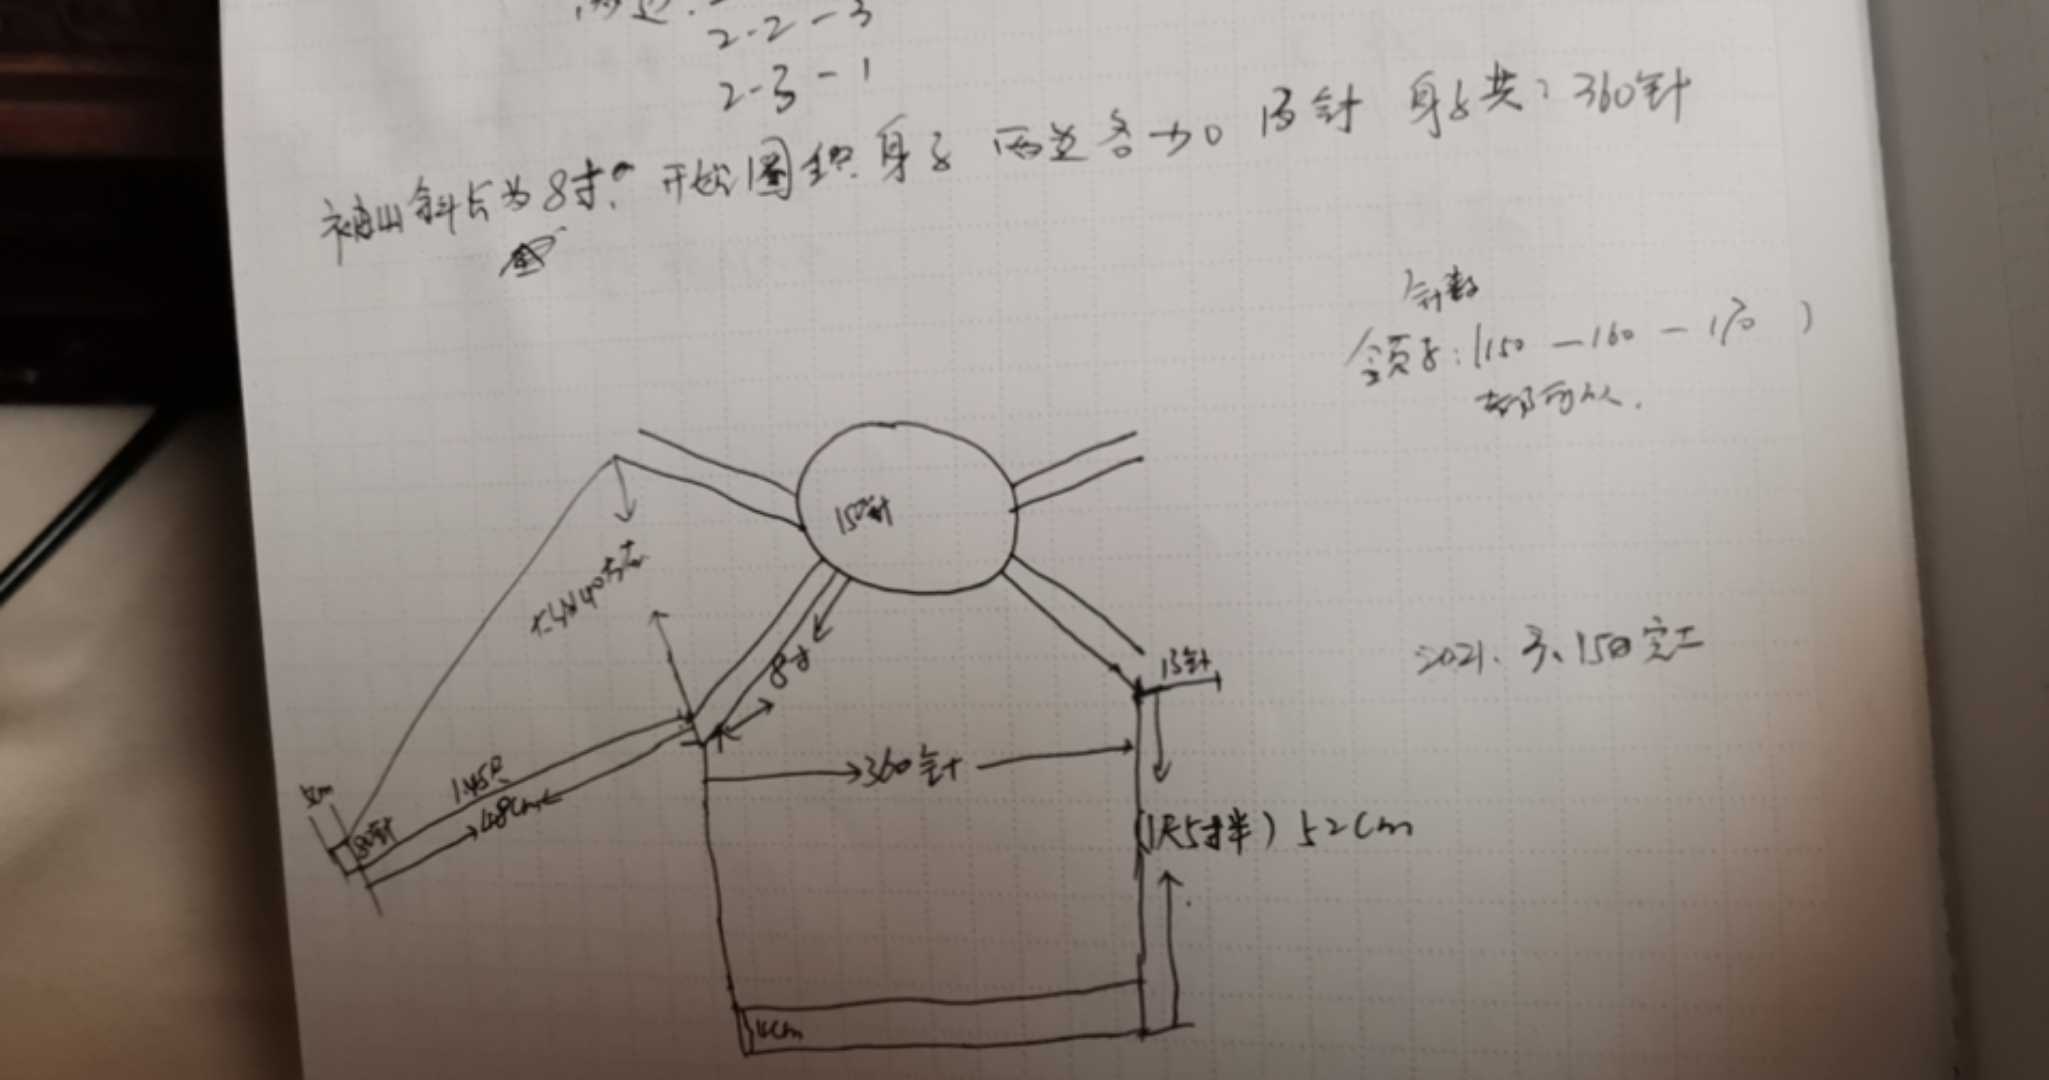 两边:
2-2-3
2-3-1
袖山斜长为8寸。开始圈织身子 两边各加 13针 身子共:360针
针数
领子:(150-160-170)
都可以.
150针
大约40针左右
8寸
13针
2021.3.15日完工
360针
1.45尺
48cm
5cm
80针
(1尺5寸半) 52cm